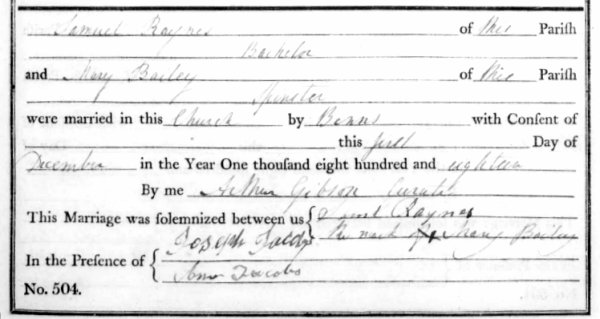 Samuel Raynes of this Parish
Bachelor
and Mary Bailey of this Parish
Spinster
were married in this Church by Banns with Consent of
this first Day of
December in the Year One thousand eight hundred and eighteen
By me Arthur Gibson Curate
This Marriage was solemnized between us { Samuel Raynes
The mark of x Mary Bailey
In the Presence of { Joseph
Ann Jacobs
No. 504.